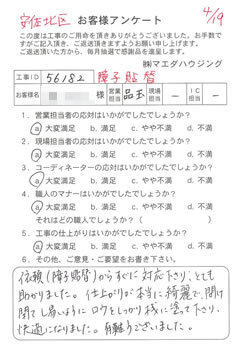 安佐北区 お客様アンケート 4/19
この度は工事のご用命を頂きありがとうございました。お手数で
すがご記入頂き、ご返送頂きますようお願い申し上げます。
ご返送頂いた方から、毎月抽選で感謝品を進呈します。
㈱マエダハウジング
工事ID 56182 障子貼替
お客様名 様 営業担当 品玉 現場担当 ー 工事担当 ー
1．営業担当者の応対はいかがでしたでしょうか？
a 大変満足 b. 満足 c. やや不満 d. 不満
2．現場担当者の応対はいかがでしたでしょうか？
a 大変満足 b. 満足 c. やや不満 d. 不満
3．コーディネーターの応対はいかがでしたでしょうか？
a 大変満足 b. 満足 c. やや不満 d. 不満
4．職人のマナーはいかがでしたでしょうか？
a 大変満足 b. 満足 c. やや不満 d. 不満
それはどの職人でしょうか？（ ）
5．工事の仕上がりはいかがでしたでしょうか？
a 大変満足 b. 満足 c. やや不満 d. 不満
6．その他、ご意見・ご要望をお聞かせ下さい。
依頼(障子貼替)からすぐに対応下さり、とても
助かりました。仕上がりが本当に綺麗で、開け
閉てし易いようにロウをしっかり桟に塗って下さり、
快適になりました。有難うございました。